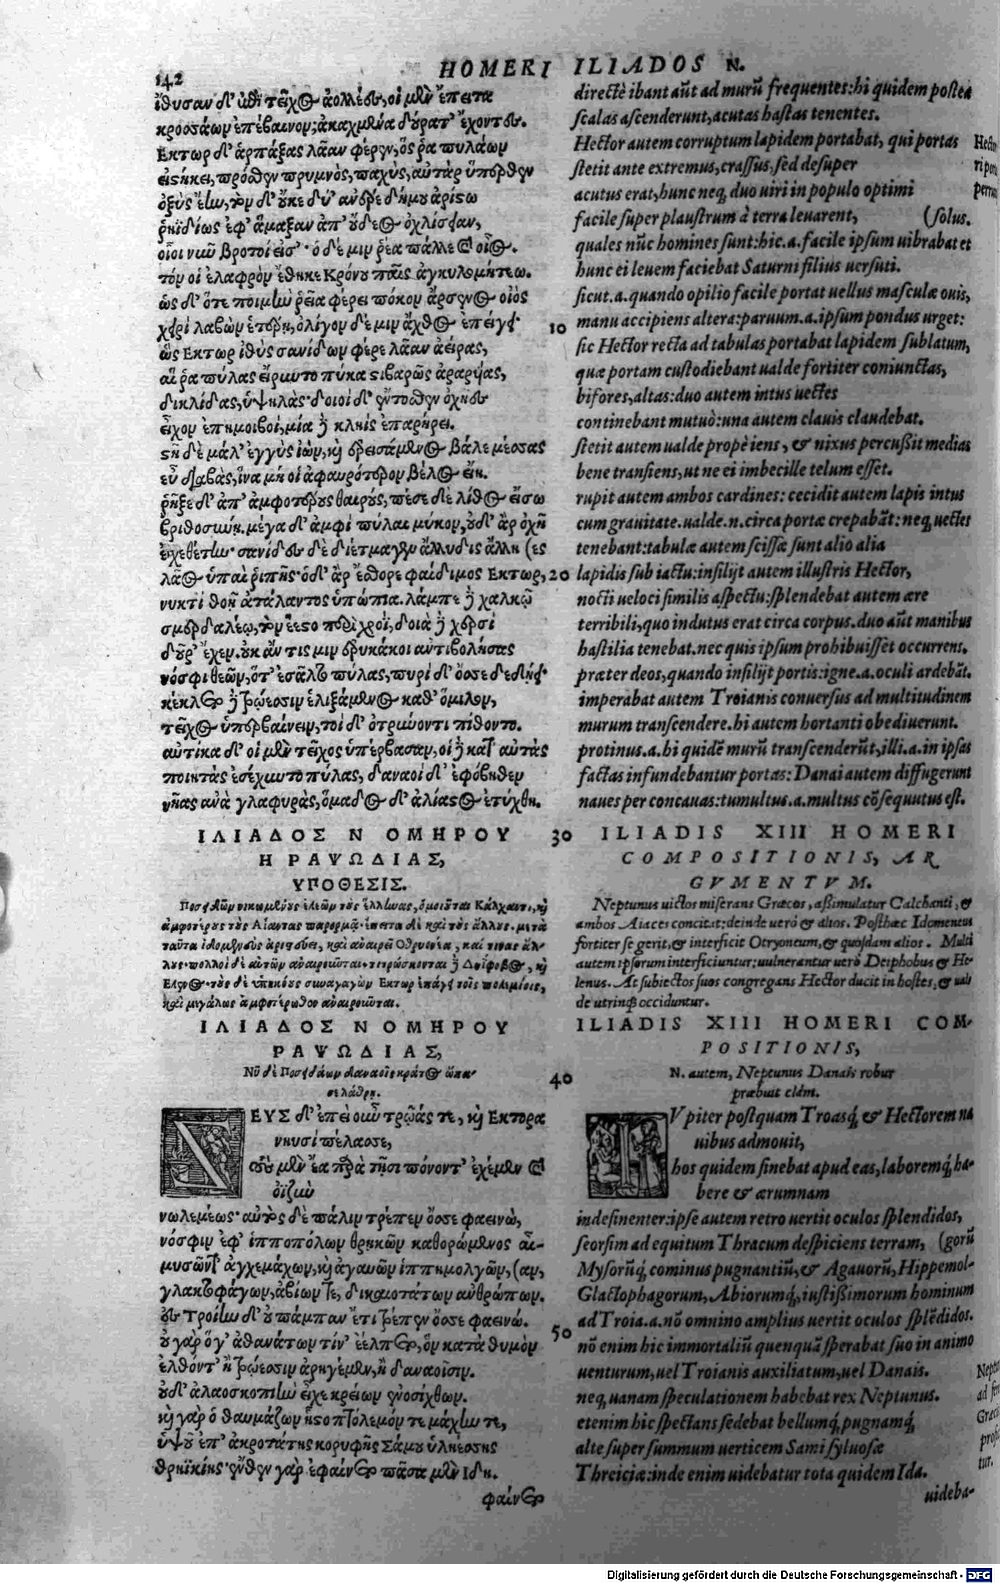 142
HOMERI ILIADOS N.
ἴθυσαν δ' ἐπὶ τεῖχος ἀολλέες, οἱ μὲν ἔπειτα
κροσσάων ἐπέβαινον; ἀκαχμένα δούρατ' ἔχοντες.
Εκτωρ δ' ἁρπάξας λᾶαν φέρεν, ὅς ῥα πυλάων
εἱστήκει, πρόσθεν πρυμνὸς, παχὺς, αὐτὰρ ὕπερθεν
ὀξὺς ἔην, τὸν δ' οὔκε δύ' ἀνδρε δήμου ἀρίστω
ῥηϊδίως ἐφ' ἅμαξαν ἀπ' οὔδεος ὀχλίσειαν,
οἷοι νῦν βροτοί εἰσ'· ὁ δέ μιν ῥέα πάλλε καὶ οἶος.
τόν οἱ ἐλαφρὸν ἔθηκε Κρόνου παῖς ἀγκυλομήτεω.
ὡς δ' ὅτε ποιμὴν ῥεῖα φέρει πόκον ἄρσενος οἰός
χειρὶ λαβὼν ἑτέρῃ, ὀλίγον δέ μιν ἄχθος ἐπείγει·
ὣς Εκτωρ ἰθὺς σανίδων φέρε λᾶαν ἀείρας,
αἵ ῥα πύλας εἴρυντο πύκα στιβαρῶς ἀραρυίας,
δικλίδας, ὑψηλὰς· δοιοὶ δ' ἔντοσθεν ὀχῆες
εἶχον ἐπημοιβοὶ, μία δὲ κληῒς ἐπαρήρει.
στῆ δὲ μάλ' ἐγγὺς ἰὼν, καὶ ἐρεισάμενος βάλε μέσσας
εὖ διαβὰς, ἵνα μή οἱ ἀφαυρότερον βέλος εἴη.
ῥῆξε δ' ἀπ' ἀμφοτέρους θαιρούς, πέσε δὲ λίθος εἴσω
βριθοσύνῃ. μέγα δ' ἀμφὶ πύλαι μύκον, οὐδ' ἂρ ὀχῆ
ἐχεθέτην· σανίδες δὲ διέτμαγεν ἄλλυδις ἄλλη (ες
λᾶος ὑπαὶ ῥιπῆς· ὁ δ' ἂρ ἔσθορε φαίδιμος Εκτωρ, 20
νυκτὶ θοῇ ἀτάλαντος ὑπώπια. λάμπε δὲ χαλκῷ
σμερδαλέῳ, τὸν ἕεστο περὶ χροῒ, δοιὰ δὲ χερσὶ
δοῦρ' ἔχεν. οὐκ ἄν τις μιν ἐρυκάκοι ἀντιβολήσας
νόσφι θεῶν, ὅτ' ἐσᾶλτο πύλας, πυρὶ δ' ὄσσε δεδήει·
κέκλετο δὲ Τρώεσσιν ἑλιξάμενος καθ' ὅμιλον,
τεῖχος ὑπερβαίνειν, τοὶ δ' ὀτρύνοντι πίθοντο.
αὐτίκα δ' οἱ μὲν τεῖχος ὑπέρβασαν, οἱ δὲ κατ' αὐτὰς
ποιητὰς ἐσέχυντο πύλας, δαναοὶ δ' ἐφόβηθεν
νῆας ἀνὰ γλαφυρὰς, ὅμαδος δ' ἀλίαστος ἐτύχθη.
ΙΛΙΑΔΟΣ Ν ΟΜΗΡΟΥ
Η ΡΑΨΩΔΙΑΣ,
ΥΠΟΘΕΣΙΣ.
Ποσειδῶν νικωμένους ἐλεῶν τοὺς ἕλληνας, ὁμοιοῦται Κάλχαντι, καὶ
ἀμφοτέρους τοὺς Αἴαντας παρορμᾷ· ἔπειτα δὲ καὶ τοὺς ἄλλους. μετὰ
ταῦτα ἰδομενεὺς ἀριστεύει, καὶ ἀναιρεῖ Οθρυονέα, καὶ τινας ἄλ-
λους· πολλοὶ δὲ αὐτῶν ἀναιροῦνται· τιτρώσκονται δὲ Δηΐφοβος, καὶ
Ελενος· τοὺς δὲ ὑπηκόους συναγαγὼν Εκτωρ ἐπάγει τοῖς πολεμίοις,
καὶ μεγάλως ἀμφοτέρωθεν ἀναιροῦνται.
ΙΛΙΑΔΟΣ Ν ΟΜΗΡΟΥ
ΡΑΨΩΔΙΑΣ,
Νῦ δὲ Ποσειδάων δαναοῖς κράτος ὤπα-
σε λάθρη.
ΖΕΥΣ δ' ἐπεὶ οὖν τρῶάς τε, καὶ Εκτορα
νηυσὶ πέλασσε,
τοὺς μὲν ἔα παρὰ τῇσι πόνοντ' ἐχέμεν καὶ
ὀϊζὺν
νωλεμέως· αὐτὸς δὲ πάλιν τρέπεν ὄσσε φαεινὼ,
νόσφιν ἐφ' ἱπποπόλων θρηκῶν καθορώμενος αἶ-
μυσῶντ' ἀγχεμάχων, καὶ ἀγαυῶν ἱππημολγῶν, (αν,
γλακτοφάγων, ἀβίων τε, δικαιοτάτων ἀνθρώπων.
ἐς Τροίην δ' οὐ πάμπαν ἔτι τρέπεν ὄσσε φαεινώ.
οὐ γὰρ ὅγ' ἀθανάτων τίν' ἐέλπετο, ὃν κατὰ θυμὸν
ἐλθόντ' ἢ Τρώεσσιν ἀρηγέμεν, ἢ δαναοῖσιν.
οὐδ' ἀλαοσκοπιὴν εἶχε κρείων ἐνοσίχθων.
καὶ γὰρ ὁ θαυμάζων ἧστο πτόλεμόν τε μάχην τε,
ὑψοῦ ἐπ' ἀκροτάτης κορυφῆς Σάμου ὑληέσσης
θρηϊκίης· ἔνθεν γὰρ ἐφαίνετο πᾶσα μὲν Ιδη.
φαίνετο
directè ibant aũt ad murũ frequentes: hi quidem postea
scalas ascenderunt, acutas hastas tenentes.
Hector autem corruptum lapidem portabat, qui portas
stetit ante extremus, crassus, sed desuper
acutus erat, hunc neq; duo uiri in populo optimi
facile super plaustrum à terra leuarent, (solus.
quales nũc homines sunt: hic.a. facile ipsum uibrabat et
hunc ei leuem faciebat Saturni filius uersuti.
sicut.a. quando opilio facile portat uellus masculæ ouis,
10 manu accipiens altera: paruum.a. ipsum pondus urget:
sic Hector recta ad tabulas portabat lapidem sublatum,
quæ portam custodiebant ualde fortiter coniunctas,
bifores, altas: duo autem intus uectes
continebant mutuò: una autem clauis claudebat.
stetit autem ualde propè iens, & nixus percußit medias
bene transiens, ut ne ei imbecille telum esset.
rupit autem ambos cardines: cecidit autem lapis intus
cum grauitate. ualde.n. circa portæ crepabãt: neq; uectes
tenebant: tabulæ autem scissæ sunt alio alia
lapidis sub iactu: insilijt autem illustris Hector,
nocti ueloci similis aspectu: splendebat autem ære
terribili, quo indutus erat circa corpus. duo aũt manibus
hastilia tenebat. nec quis ipsum prohibuisset occurrens.
præter deos, quando insilijt portis: igne.a. oculi ardebãt.
imperabat autem Troianis conuersus ad multitudinem
murum transcendere. hi autem hortanti obediuerunt.
protinus.a. hi quidẽ murũ transcenderũt, illi.a. in ipsas
factas infundebantur portas: Danai autem diffugerunt
naues per concauas: tumultus.a. multus cõsequutus est.
30 ILIADIS XIII HOMERI
COMPOSITIONIS, AR
GVMENTVM.
Neptunus uictos miserans Græcos, aßimulatur Calchanti, &
ambos Aiaces concitat: deinde uerò & alios. Posthæc Idomeneus
fortiter se gerit, & interficit Otryoneum, & quosdam alios. Multi
autem ipsorum interficiuntur: uulnerantur uerò Deiphobus & He-
lenus. At subiectos suos congregans Hector ducit in hostes, & uali
de utrinq; occiduntur.
ILIADIS XIII HOMERI COM-
POSITIONIS,
40 N. autem, Neptunus Danais robur
præbuit clàm.
IVpiter postquam Troasq́, & Hectorem na
uibus admouit,
hos quidem sinebat apud eas, laboremq́, ha-
bere & ærumnam
indesinenter: ipse autem retro uertit oculos splendidos,
seorsim ad equitum Thracum despiciens terram, (gorũ
Mysorũq́, cominus pugnantiũ, & Agauorũ, Hippemol-
Glactophagorum, Abiorumq́, iustißimorum hominum
ad Troia.a. nõ omnino amplius uertit oculos splẽdidos.
50 nõ enim hic immortaliũ quenquã sperabat suo in animo
uenturum, uel Troianis auxiliatum, uel Danais.
neq; uanam speculationem habebat rex Neptunus.
etenim hic spectans sedebat bellumq́, pugnamq́,
altè super summum uerticem Sami syluosæ
Threiciæ: inde enim uidebatur tota quidem Ida.
uideba-
Digitalisierung gefördert durch die Deutsche Forschungsgemeinschaft - DFG